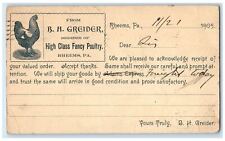 FROM
B. H. GREIDER,
BREEDER OF
High Class Fancy Poultry.
RHEEMS, PA.
Rheems, Pa. 11/21 1905.
Dear Sir
We are pleased to acknowledge receipt of
your valued order. Accept thanks. Same shall receive our careful and prompt at-
tention. We will ship your goods by freight today
and trust the same will arrive in good condition and prove satisfactory.
Yours Truly, B. H. GREIDER.